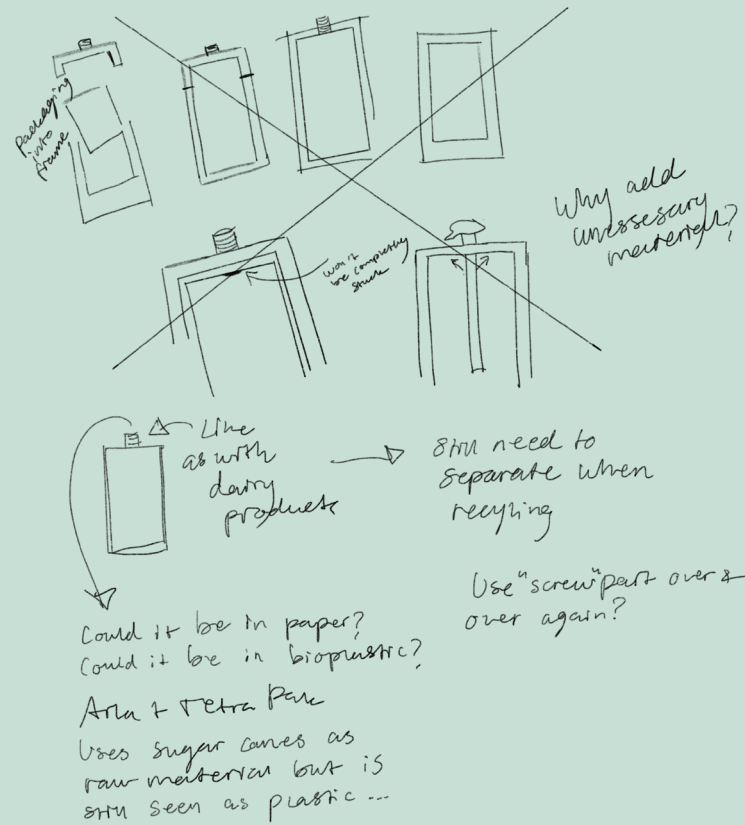 Packaging
into
frame
Why add
unessesary
material?
won't
be completely
stuck
Like
as with
dairy
products
Still need to
separate when
recycling
Use "screw" part over &
over again?
Could it be in paper?
Could it be in bioplastic?
Arla + Tetra Pak
Uses sugar canes as
raw material but is
still seen as plastic...